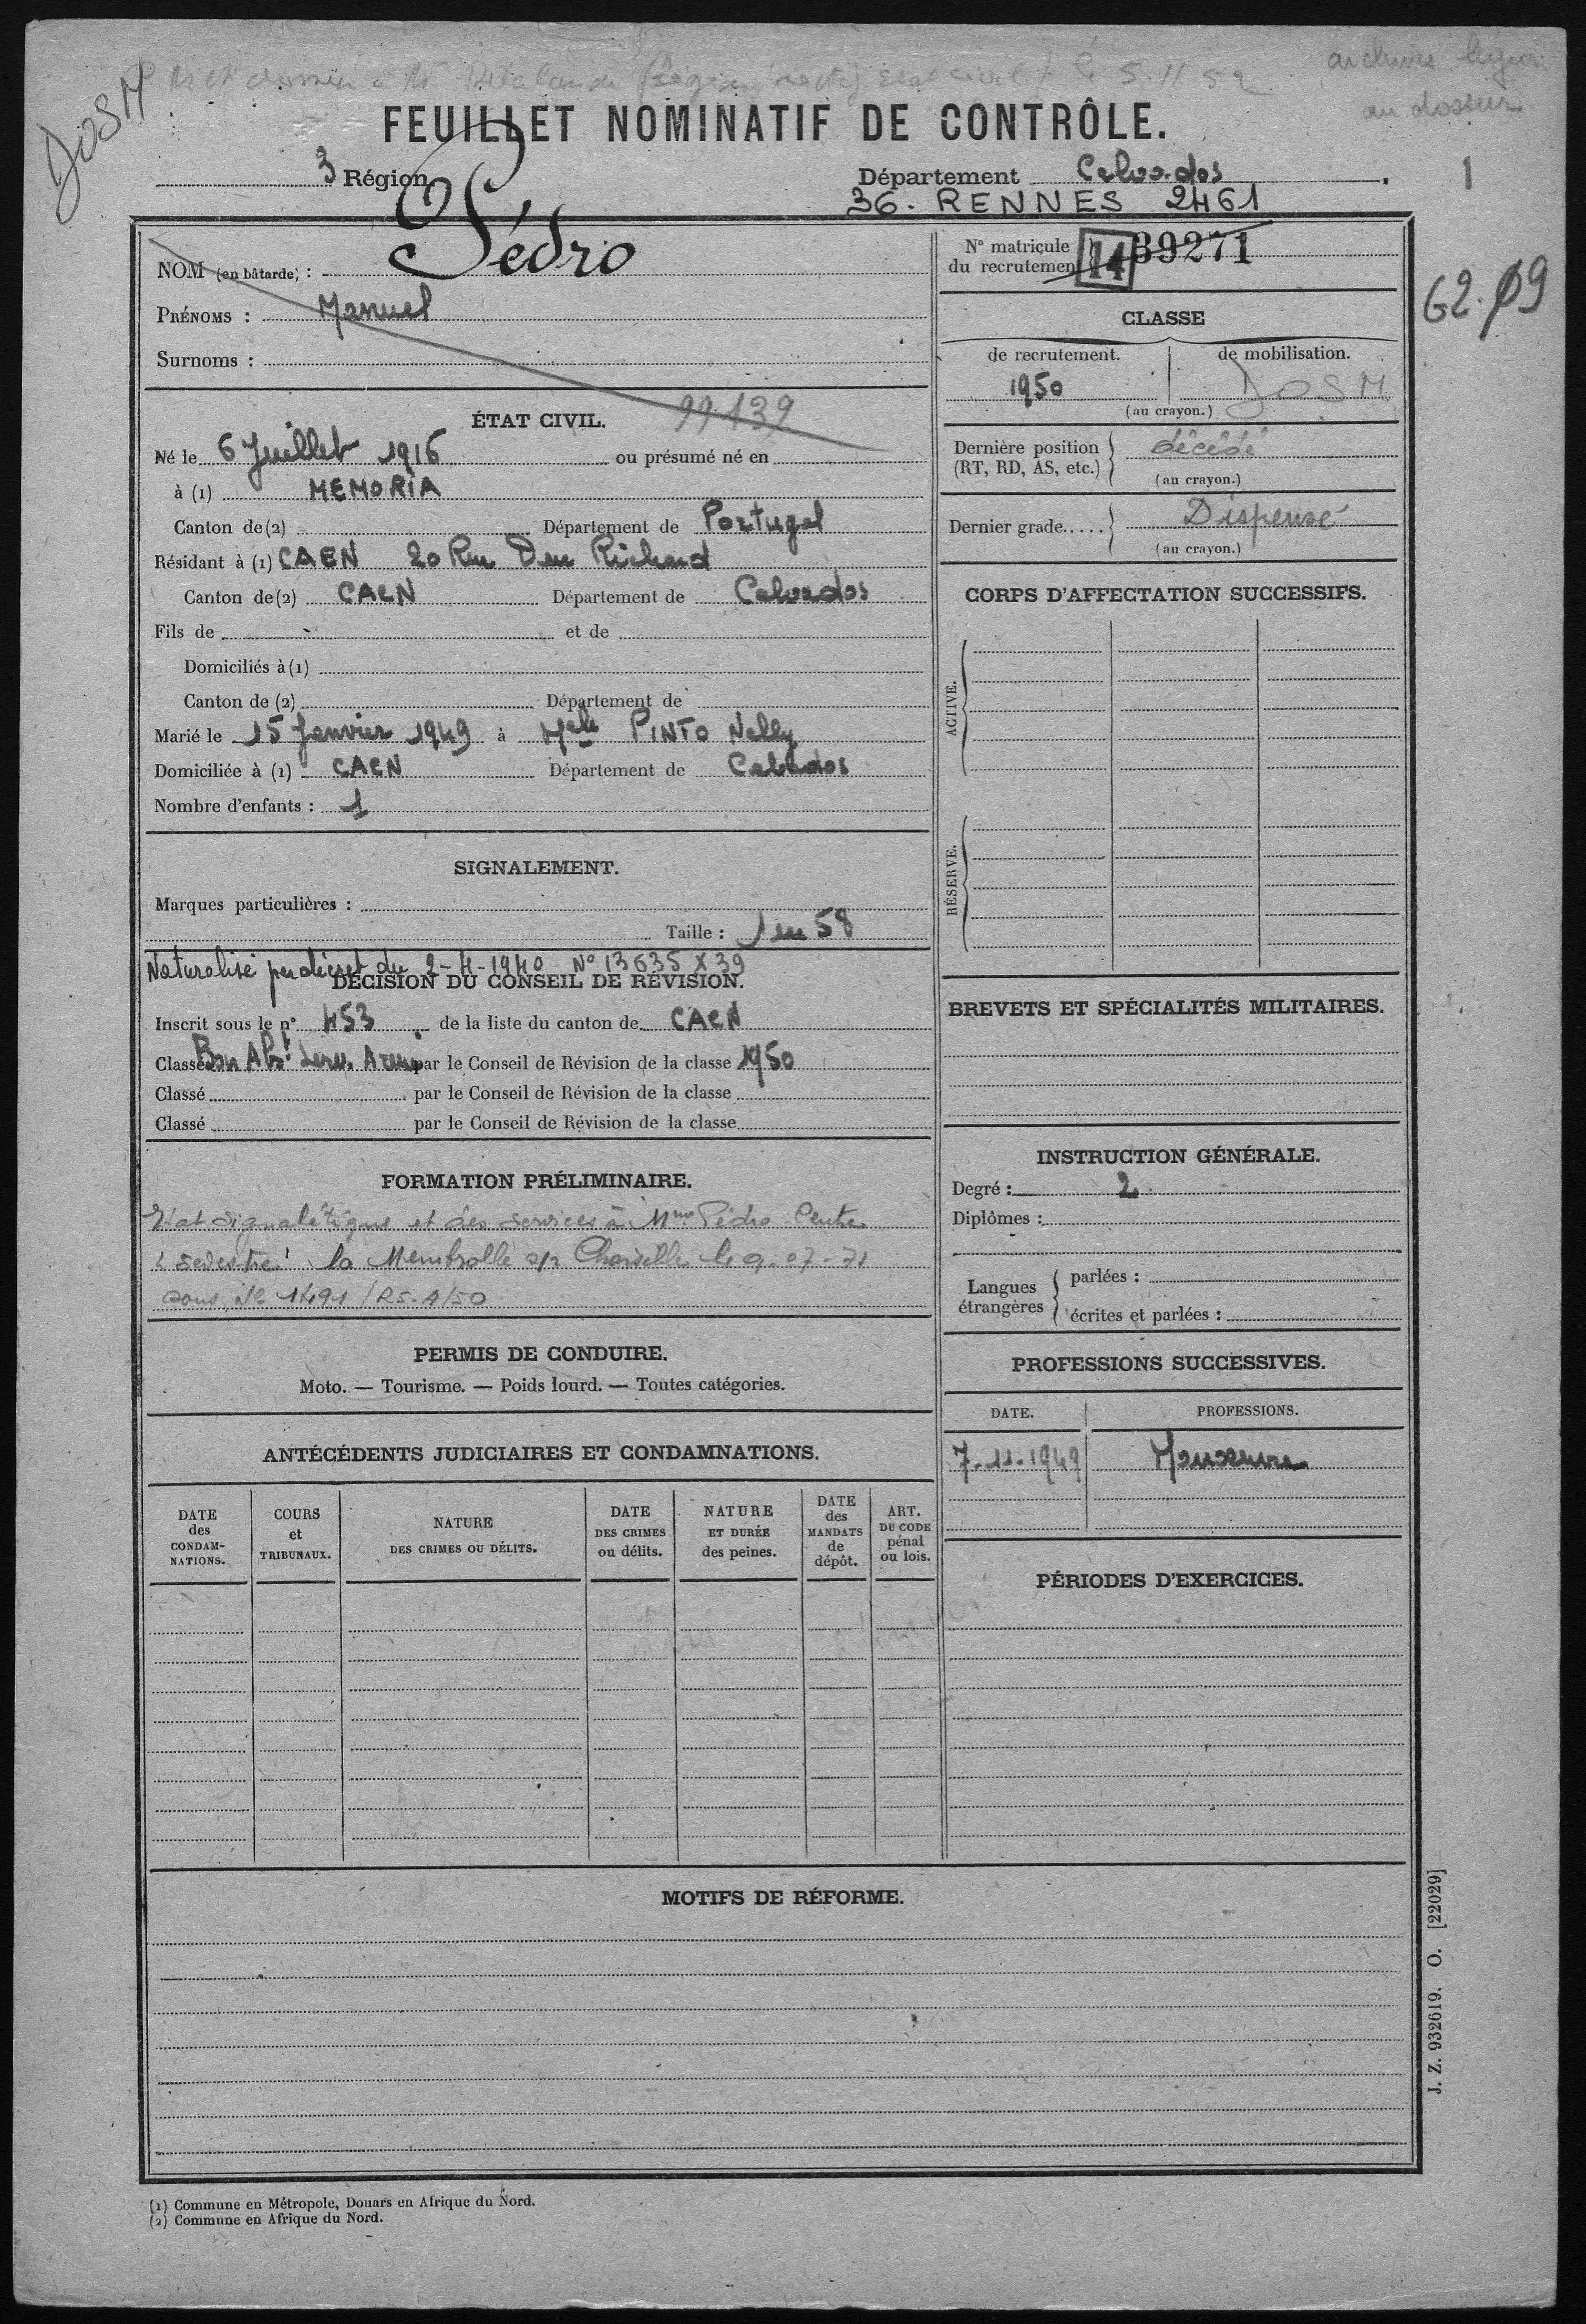 DOSM
le 5.11.52
archives
au dossier
FEUILLET NOMINATIF DE CONTRÔLE.
3 Région
Département Calvados.
1
36. RENNES 2461
NOM (en bâtarde) : Pédro
PRÉNOMS : Manuel
Surnoms :
99139
ÉTAT CIVIL.
Né le 6 Juillet 1916 ou présumé né en
à (1) MEMORIA
Canton de (2) Département de Portugal
Résidant à (1) CAEN 20 Rue Duc Richard
Canton de (2) CAEN Département de Calvados
Fils de et de
Domiciliés à (1)
Canton de (2) Département de
Marié le 15 Janvier 1949 à Melle PINTO Nelly
Domiciliée à (1) CAEN Département de Calvados
Nombre d'enfants : 1
SIGNALEMENT.
Marques particulières :
Taille : 1m 58
Naturalisé par décret du 2-4-1940 N° 13635 X 39
DÉCISION DU CONSEIL DE RÉVISION.
Inscrit sous le n° 453 de la liste du canton de CAEN
Classé Bon Abst Serv. Armé par le Conseil de Révision de la classe 1950
Classé par le Conseil de Révision de la classe
Classé par le Conseil de Révision de la classe
FORMATION PRÉLIMINAIRE.
Etat signalétique et des services à Mme Pédro Centre
la Membrolle s/r Choisille le 9-07-71
sous N° 1494/RS-A/50
PERMIS DE CONDUIRE.
Moto. — Tourisme. — Poids lourd. — Toutes catégories.
ANTÉCÉDENTS JUDICIAIRES ET CONDAMNATIONS.
DATE des CONDAM-NATIONS.
COURS et TRIBUNAUX.
NATURE DES CRIMES OU DÉLITS.
DATE DES CRIMES ou délits.
NATURE ET DURÉE des peines.
DATE des MANDATS de dépôt.
ART. DU CODE pénal ou lois.
N° matricule du recrutement 14 39271
62.09
CLASSE
de recrutement. de mobilisation.
1950 DOSM
(au crayon.)
Dernière position (RT, RD, AS, etc.) décédé
(au crayon.)
Dernier grade..... Dispensé
(au crayon.)
CORPS D'AFFECTATION SUCCESSIFS.
ACTIVE.
RÉSERVE.
BREVETS ET SPÉCIALITÉS MILITAIRES.
INSTRUCTION GÉNÉRALE.
Degré : 2
Diplômes :
Langues étrangères
parlées :
écrites et parlées :
PROFESSIONS SUCCESSIVES.
DATE. PROFESSIONS.
7-11-1949 Manœuvre
PÉRIODES D'EXERCICES.
MOTIFS DE RÉFORME.
J. Z. 932619. O. [22029]
(1) Commune en Métropole, Douars en Afrique du Nord.
(2) Commune en Afrique du Nord.